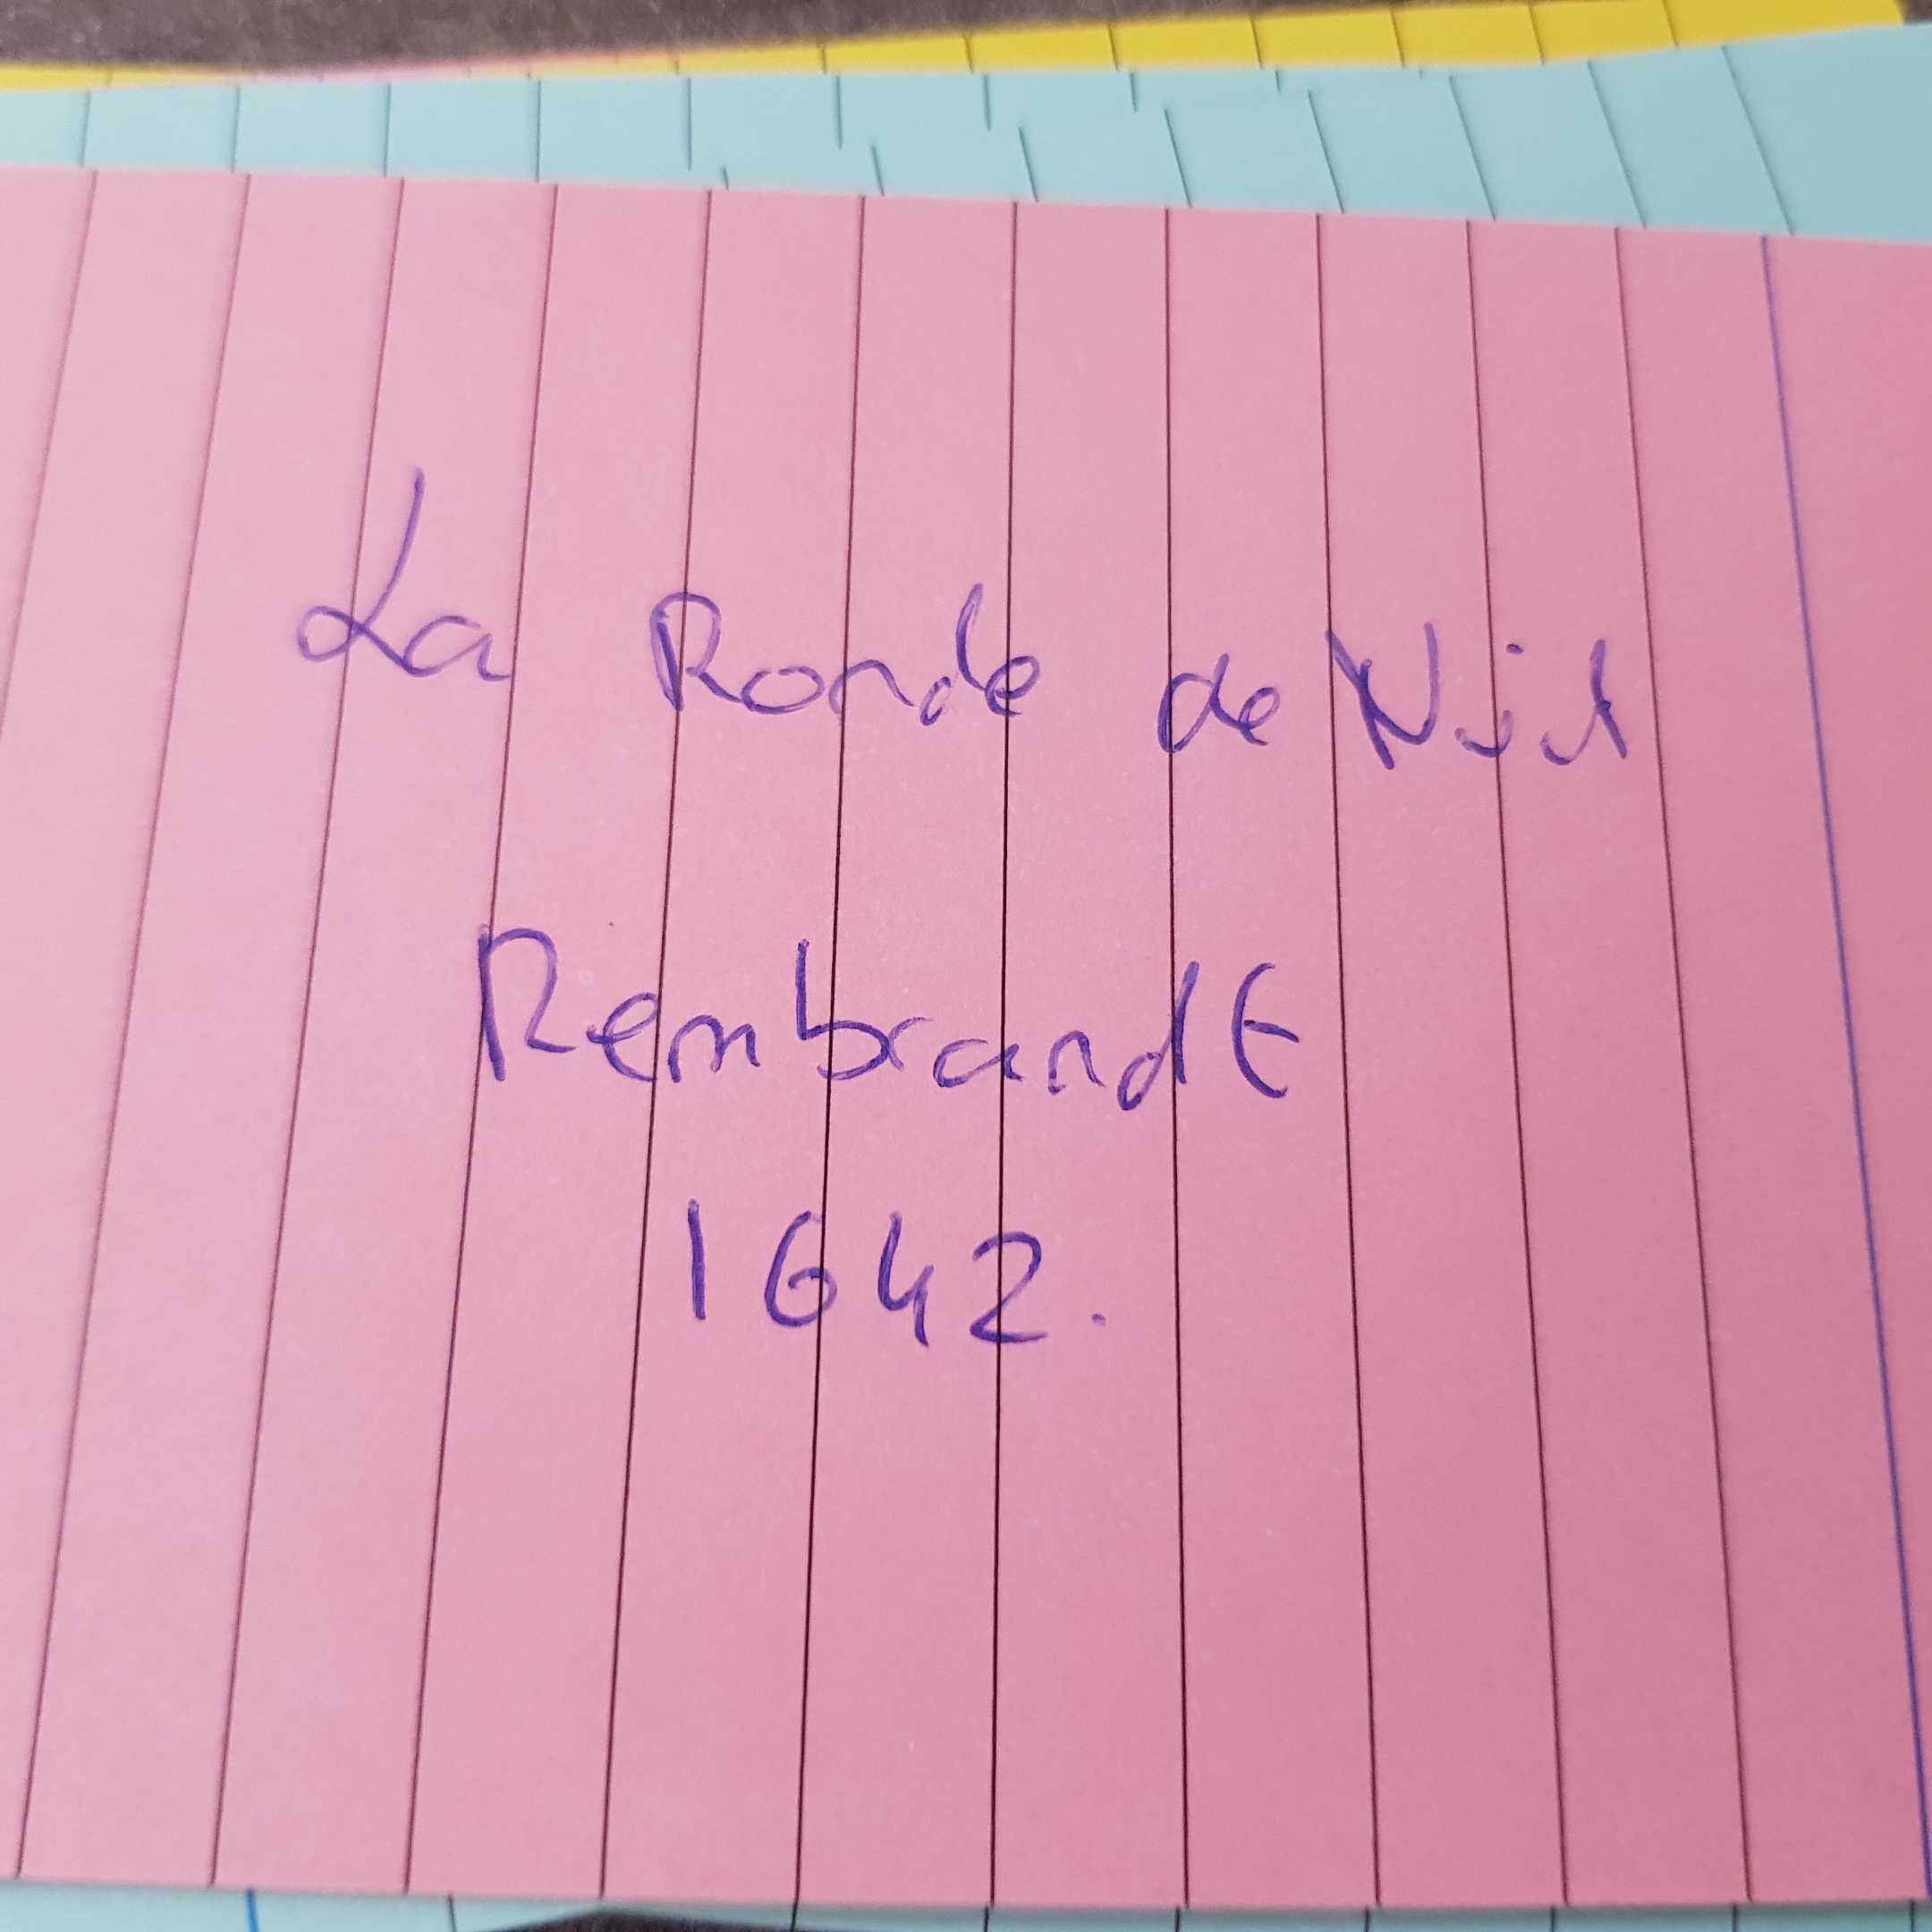 La Ronde de Nuit
Rembrandt
1642.